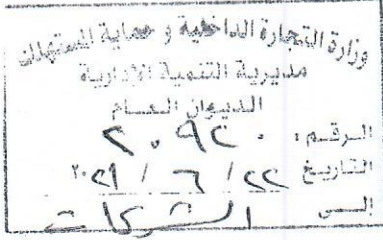 وزارة التجارة الداخلية و حماية المستهلك
مديرية التنمية الإدارية
الديوان العام
الرقم: ٢٠٩٢٠
التاريخ ٢٢ / ٦ / ٢٠٢١
إلى الشركات